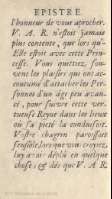 EPISTRE.
l'honneur de vous aprocher.
V. A. R. n'estoit jamais
plus contente, que lors qu'-
Elle estoit avec cette Prin-
cesse. Vous quittiez, sou-
vent les plaisirs qui ont ac-
coutumé d'attacher les Per-
sonnes d'un âge peu avan-
cé, pour suivre cette ver-
tueuse Reyne dans les lieux
où sa pieté la conduisoit.
Vostre chagrin paroissoit
lors que vous croyiez,
luy avoir déplû en quelque
chose; & dés que V. A. R.